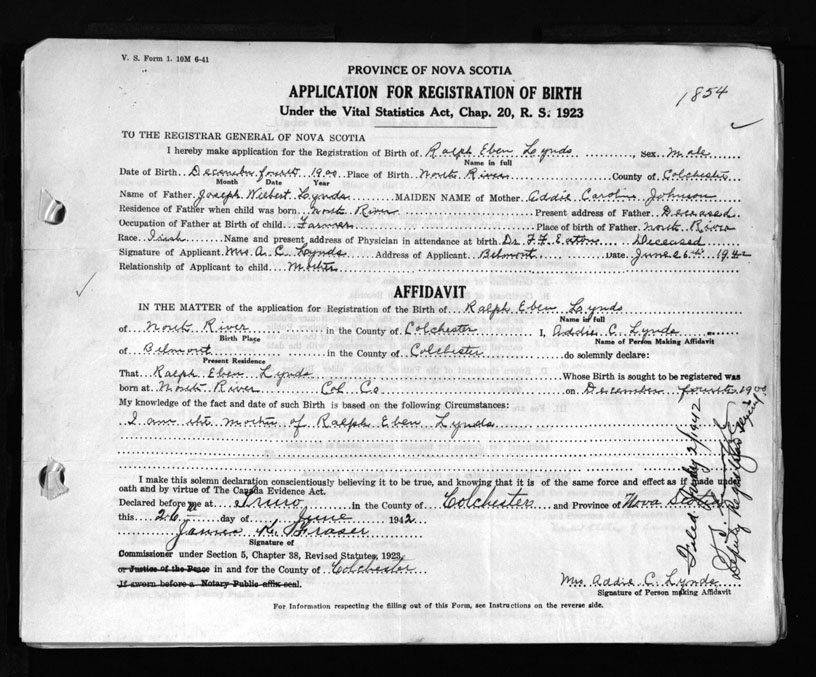 V. S. Form 1. 10M 6-41
PROVINCE OF NOVA SCOTIA
APPLICATION FOR REGISTRATION OF BIRTH
Under the Vital Statistics Act, Chap. 20, R. S. 1923
1854
TO THE REGISTRAR GENERAL OF NOVA SCOTIA
I hereby make application for the Registration of Birth of Ralph Eben Lynds, Sex Male
Name in full
Date of Birth December fourth 1900 Place of Birth North River County of Colchester
Month Date Year
Name of Father Joseph Wilbert Lynds MAIDEN NAME of Mother Addie Caroline Johnson
Residence of Father when child was born North River Present address of Father Deceased
Occupation of Father at Birth of child Farmer Place of birth of Father North River
Race Irish Name and present address of Physician in attendance at birth Dr F F Eaton Deceased
Signature of Applicant Mrs A. C. Lynds Address of Applicant Belmont Date June 26th 1942
Relationship of Applicant to child Mother
AFFIDAVIT
IN THE MATTER of the application for Registration of the Birth of Ralph Eben Lynds
Name in full
of North River in the County of Colchester I, Addie C Lynds
Birth Place Name of Person Making Affidavit
of Belmont in the County of Colchester do solemnly declare:
Present Residence
That Ralph Eben Lynds Whose Birth is sought to be registered was
born at North River Col. Co on December fourth 1900
My knowledge of the fact and date of such Birth is based on the following Circumstances:
I am the mother of Ralph Eben Lynds
I make this solemn declaration conscientiously believing it to be true, and knowing that it is of the same force and effect as if made under
oath and by virtue of The Canada Evidence Act.
Declared before me at Truro in the County of Colchester and Province of Nova Scotia
this 26th day of June 1942
James K. Fraser
Signature of
Commissioner under Section 5, Chapter 38, Revised Statutes, 1923
or Justice of the Peace in and for the County of Colchester
If sworn before a Notary Public affix seal.
Mrs Addie C. Lynds
Signature of Person making Affidavit
For Information respecting the filling out of this Form, see Instructions on the reverse side.
Filed July 2/1942
Deputy Registrar General